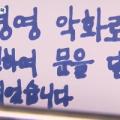 경영 악화로
하여 문을 닫
었습니다